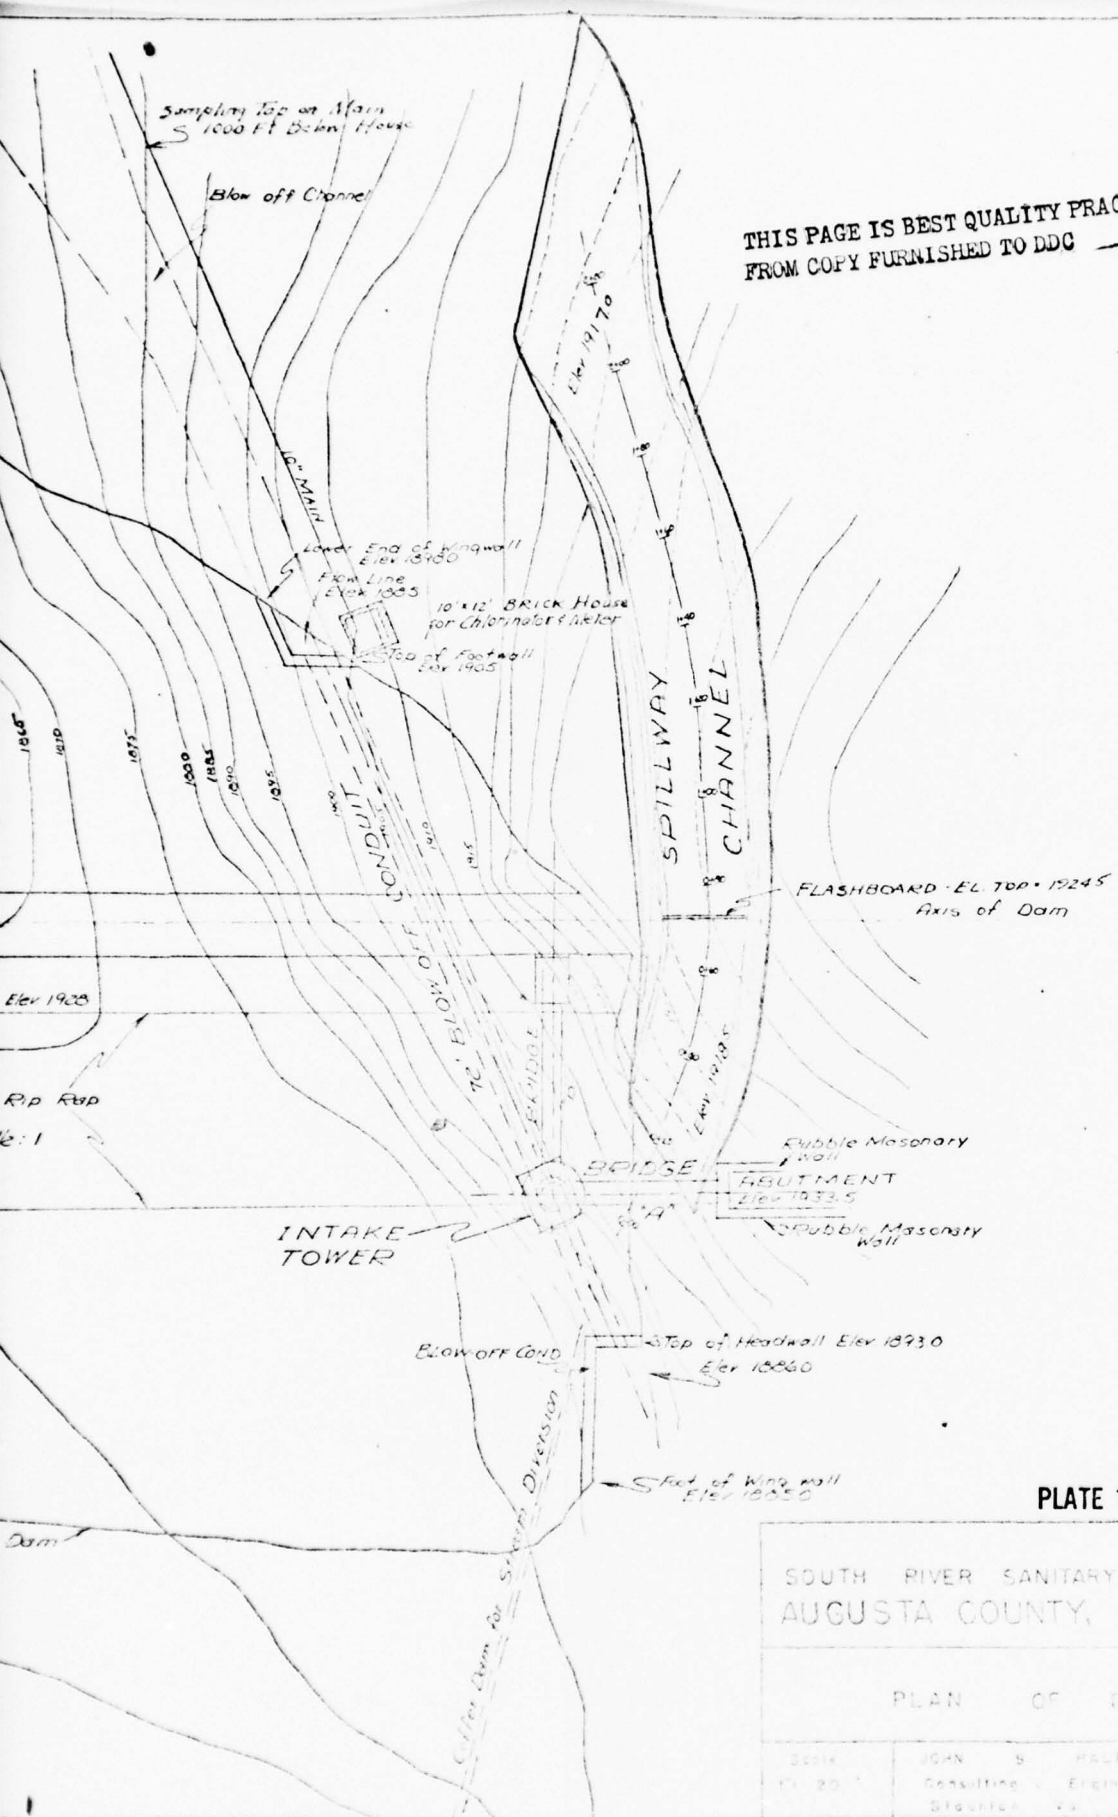 Sampling Tap on Main
1000 Ft Below House
Blow off Channel
THIS PAGE IS BEST QUALITY PRAC
FROM COPY FURNISHED TO DDC
Elev 1917.0
10" MAIN
Lower End of Wingwall
Elev 1898.0
Flow Line
Elev 1885
10'x12' BRICK House
for Chlorinator & Meter
Top of Footwall
Elev 1905
SPILLWAY
CHANNEL
1865
1870
1875
1880
1885
1890
1895
1900
1905
1910
1915
FLASHBOARD - EL. TOP - 1924.5
Axis of Dam
72" BLOW OFF CONDUIT
Elev 1928
BRIDGE
Elev 1918.5
Rip Rap
BRIDGE
"A"
Rubble Masonary
Wall
ABUTMENT
Elev 1933.5
Rubble Masonary
Wall
INTAKE
TOWER
BLOW-OFF COND
Top of Headwall Elev 1893.0
Elev 1886.0
Foot of Wing wall
Coffer Dam for Stream Diversion
Dam
PLATE
SOUTH RIVER SANITARY
AUGUSTA COUNTY,
PLAN OF
Scale
JOHN
Consulting
Staunton Va